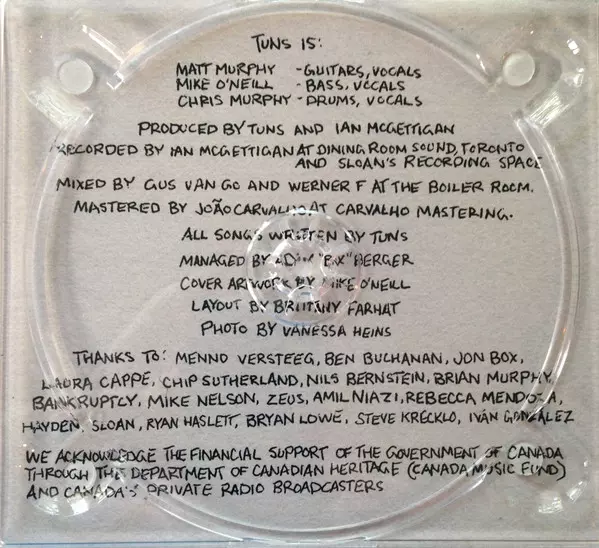 TUNS IS:
MATT MURPHY - GUITARS, VOCALS
MIKE O'NEILL - BASS, VOCALS
CHRIS MURPHY - DRUMS, VOCALS
PRODUCED BY TUNS AND IAN MCGETTIGAN
RECORDED BY IAN MCGETTIGAN AT DINING ROOM SOUND, TORONTO
AND SLOAN'S RECORDING SPACE
MIXED BY GUS VAN GO AND WERNER F AT THE BOILER ROOM.
MASTERED BY JOÃO CARVALHO AT CARVALHO MASTERING.
ALL SONGS WRITTEN BY TUNS
MANAGED BY BERGER
COVER ARTWORK BY MIKE O'NEILL
LAYOUT BY BRITTANY FARHAT
PHOTO BY VANESSA HEINS
THANKS TO: MENNO VERSTEEG, BEN BUCHANAN, JON BOX,
LAURA CAPPE, CHIP SUTHERLAND, NILS BERNSTEIN, BRIAN MURPHY,
BANKRUPTCY, MIKE NELSON, ZEUS, AMIL NIAZI, REBECCA MENDOZA,
HAYDEN, SLOAN, RYAN HASLETT, BRYAN LOWE, STEVE KRECKLO, IVÁN GONZALEZ
WE ACKNOWLEDGE THE FINANCIAL SUPPORT OF THE GOVERNMENT OF CANADA
THROUGH THE DEPARTMENT OF CANADIAN HERITAGE (CANADA MUSIC FUND)
AND CANADA'S PRIVATE RADIO BROADCASTERS